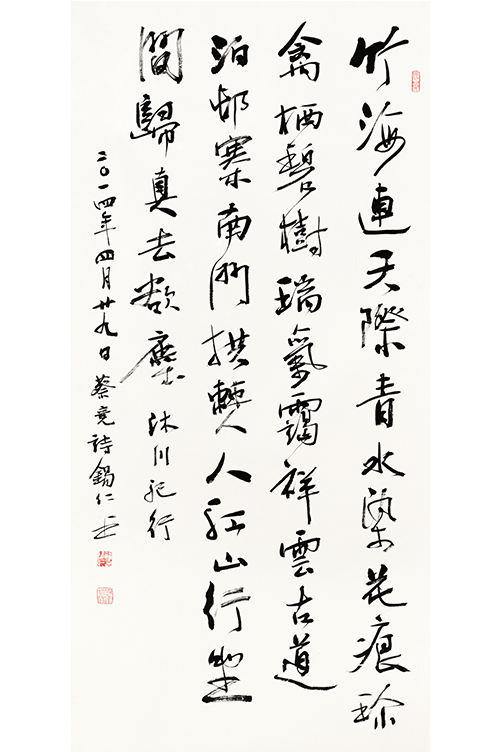 竹海連天際青水染花痕珍
禽栖碧樹瑞氣靄祥雲古道
泊邨寨南門拱人江山行坐
間歸真去欲塵 沐川記行
二〇一四年四月廿九日蔡堯詩錫仁